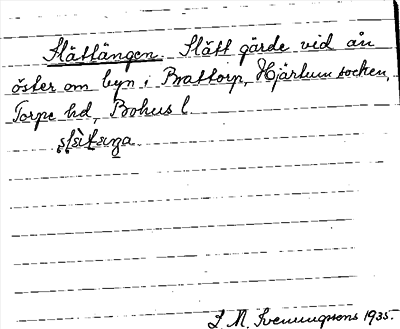 Slättängen. Slätt gärde vid ån
öster om byn i Brattorp, Hjärtum socken,
Torpe hd, Bohus l.
J. M. Sveningsons 1935.